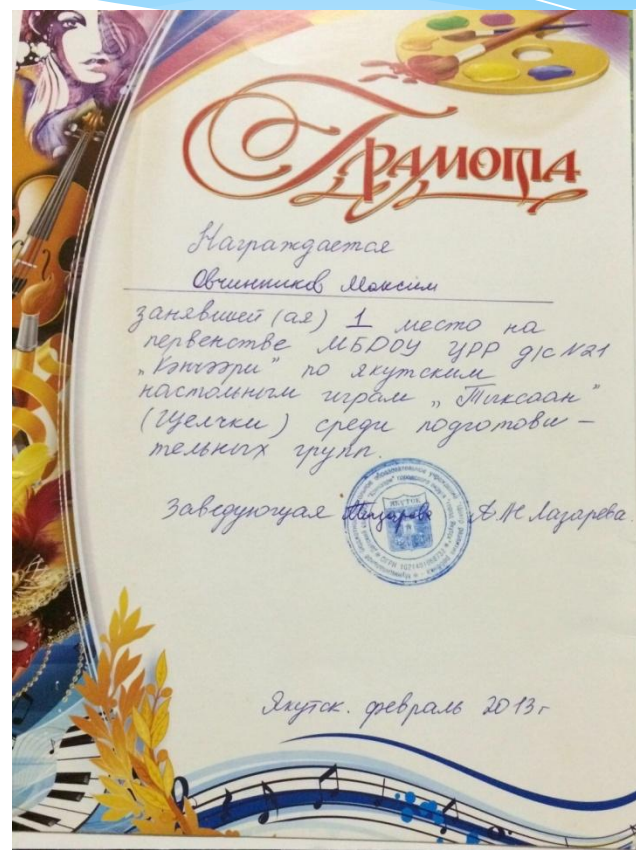 Грамота
Награждается
Овчинников Максим
занявший (ая) 1 место на
первенстве МБДОУ ЦРР д/с №21
„Кэнчээри" по якутским
настольным играм „Тыксаан"
(Щелчки) среди подготови -
тельных групп.
Заведующая А.Н Лазарева.
ЯКУТСК
Якутск. февраль 2013г